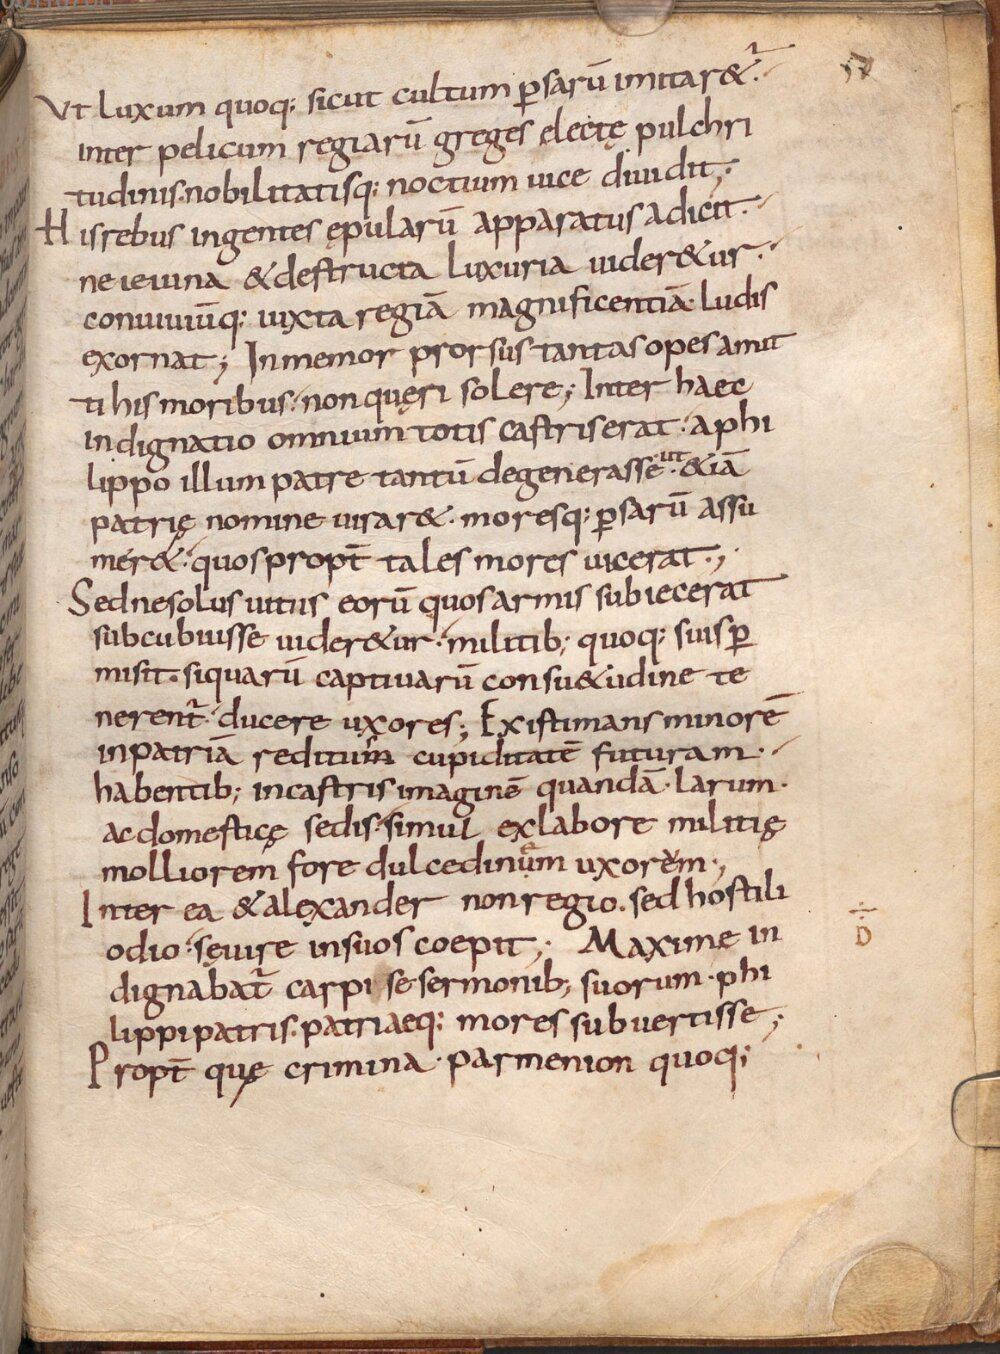 57
Vt luxum quoq; sicut cultum ꝑsarū imitar&ur.
inter pelicum regiarū greges electę pulchri
tudinis.nobilitatisq; noctium uice diuidit;
His rebus ingentes ępularū apparatus adicit.
ne ieiuna & destructa luxuria uider&ur.
conuiuiūq; iuxta regiā magnificentiā. ludis
exornat; Inmemor prorsus tantas opes amit
ti his moribus. non quęri solere; Inter haec
indignatio omnium totis castris erat. a phi
lippo illum patre tantū degenerasse. ut &iā
patrię nomine uirar&. moresq; ꝑsarū assu
mer&. quos propt̄ tales mores uicerat;
Sed ne solus uitiis eorū quos armis subiecerat
subcubuisse uider&ur. militib; quoq; suis ꝑ
misit. siquarū captiuarū consu&udine te
nerent̄. ducere uxores; Existimans minorē
in patriā reditum cupiditatē futuram.
habentib; in castris imaginē quandā. larum.
ac domesticę sedis. simul ex labore militię
molliorem fore dulcedinum uxorem;
Inter ea & alexander non regio. sed hostili
odio. sęuire in suos coepit; Maxime in
dignabat̄ carpi se sermonib; suorum. phi
lippi patris. patriaeq; mores subuertisse;
Propt̄ quę crimina. parmenion quoq;
D